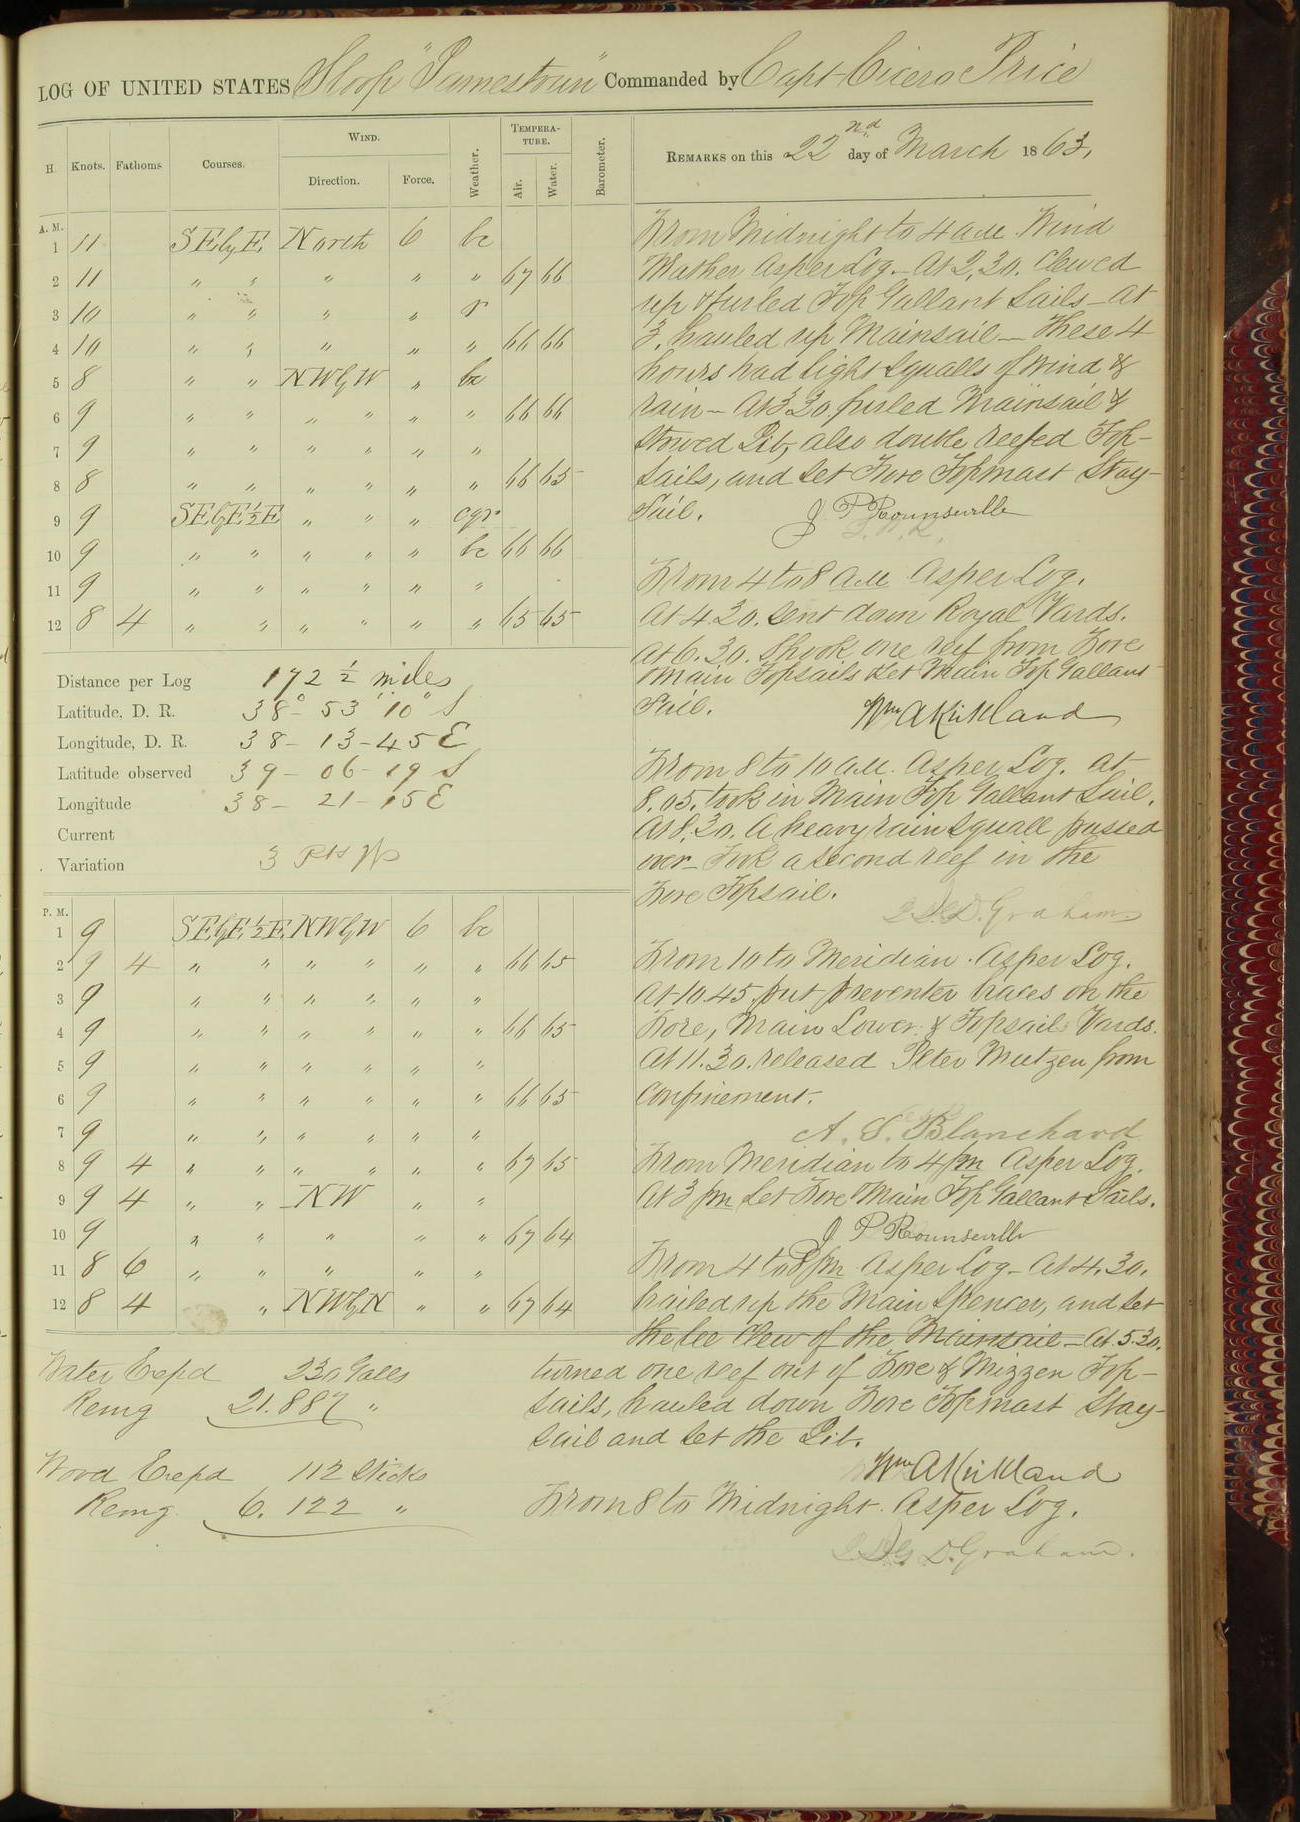 LOG OF UNITED STATES Sloop "Jamestown" Commanded by Capt Cicero Price
H. Knots. Fathoms Courses. WIND. Direction. Force. Weather. TEMPERATURE. Air. Water. Barometer.
REMARKS on this 22nd day of March 1863,
A. M.
1 11 SEbyE. North 6 bc
2 11 " " " " " 67 66
3 10 " " " " r
4 10 " " " " " 66 66
5 8 " " NWbyW " bc
6 9 " " " " " " 66 66
7 9 " " " " " "
8 8 " " " " " " 66 65
9 9 SEbyE½E " " " cqr
10 9 " " " " " bc 66 66
11 9 " " " " " "
12 8 4 " " " " " " 65 65
Distance per Log 172 ½ miles
Latitude, D. R. 38° 53' 10" S
Longitude, D. R. 38 - 13 - 45 E
Latitude observed 39 - 06 - 19 S
Longitude 38 - 21 - 15 E
Current
Variation 3 Pts
P. M.
1 9 SEbyE½E. NWbyW 6 bc
2 9 4 " " " " " " 66 65
3 9 " " " " " "
4 9 " " " " " " 66 65
5 9 " " " " " "
6 9 " " " " " " 66 65
7 9 " " " " " "
8 9 4 " " " " " " 67 65
9 9 4 " " NW " "
10 9 " " " " " 67 64
11 8 6 " " " " "
12 8 4 " NWbyN " " 67 64
Water Expd 230 Galls
Remg 21.887 "
Wood Expd 112 Sticks
Remg 6.122 "
From Midnight to 4 a.m. Wind
Weather as per Log. - At 2,30. clewed
up & furled Top Gallant Sails - at
3, hauled up Mainsail - These 4
hours had light squalls of wind &
rain - At 3 30 furled Mainsail &
Stowed Jib, also double reefed Top-
sails, and set Fore Topmast Stay-
sail. J P Rounseville
From 4 to 8 a.m. As per Log.
At 4.30. sent down Royal Yards.
at 6.30. Shook one reef from Fore
& Main Topsails & set Main Top Gallant
Sail. Wm A Kirkland
From 8 to 10 a.m. As per Log. at
8.05. took in Main Top Gallant Sail.
At 8.30. A heavy rain squall passed
over - Took a second reef in the
Fore Topsail.
D. Graham
From 10 to Meridian. As per Log.
At 10.45. put preventer braces on the
Fore, Main Lower & Topsail Yards.
At 11.30. released Peter Mutzen from
confinement.
A. S. Blanchard
From Meridian to 4 pm As per Log.
At 3 pm Set Fore & Main Top Gallant Sails.
J P Rounseville
From 4 to 8 pm As per Log - At 4.30.
hailed up the Main Spencer, and set
the lee clew of the Mainsail - At 5.30.
turned one reef out of Fore & Mizzen Top-
sails, hauled down Fore Topmast Stay-
sail and set the Jib.
Wm A Kirkland
From 8 to Midnight. As per Log.
D. Graham.